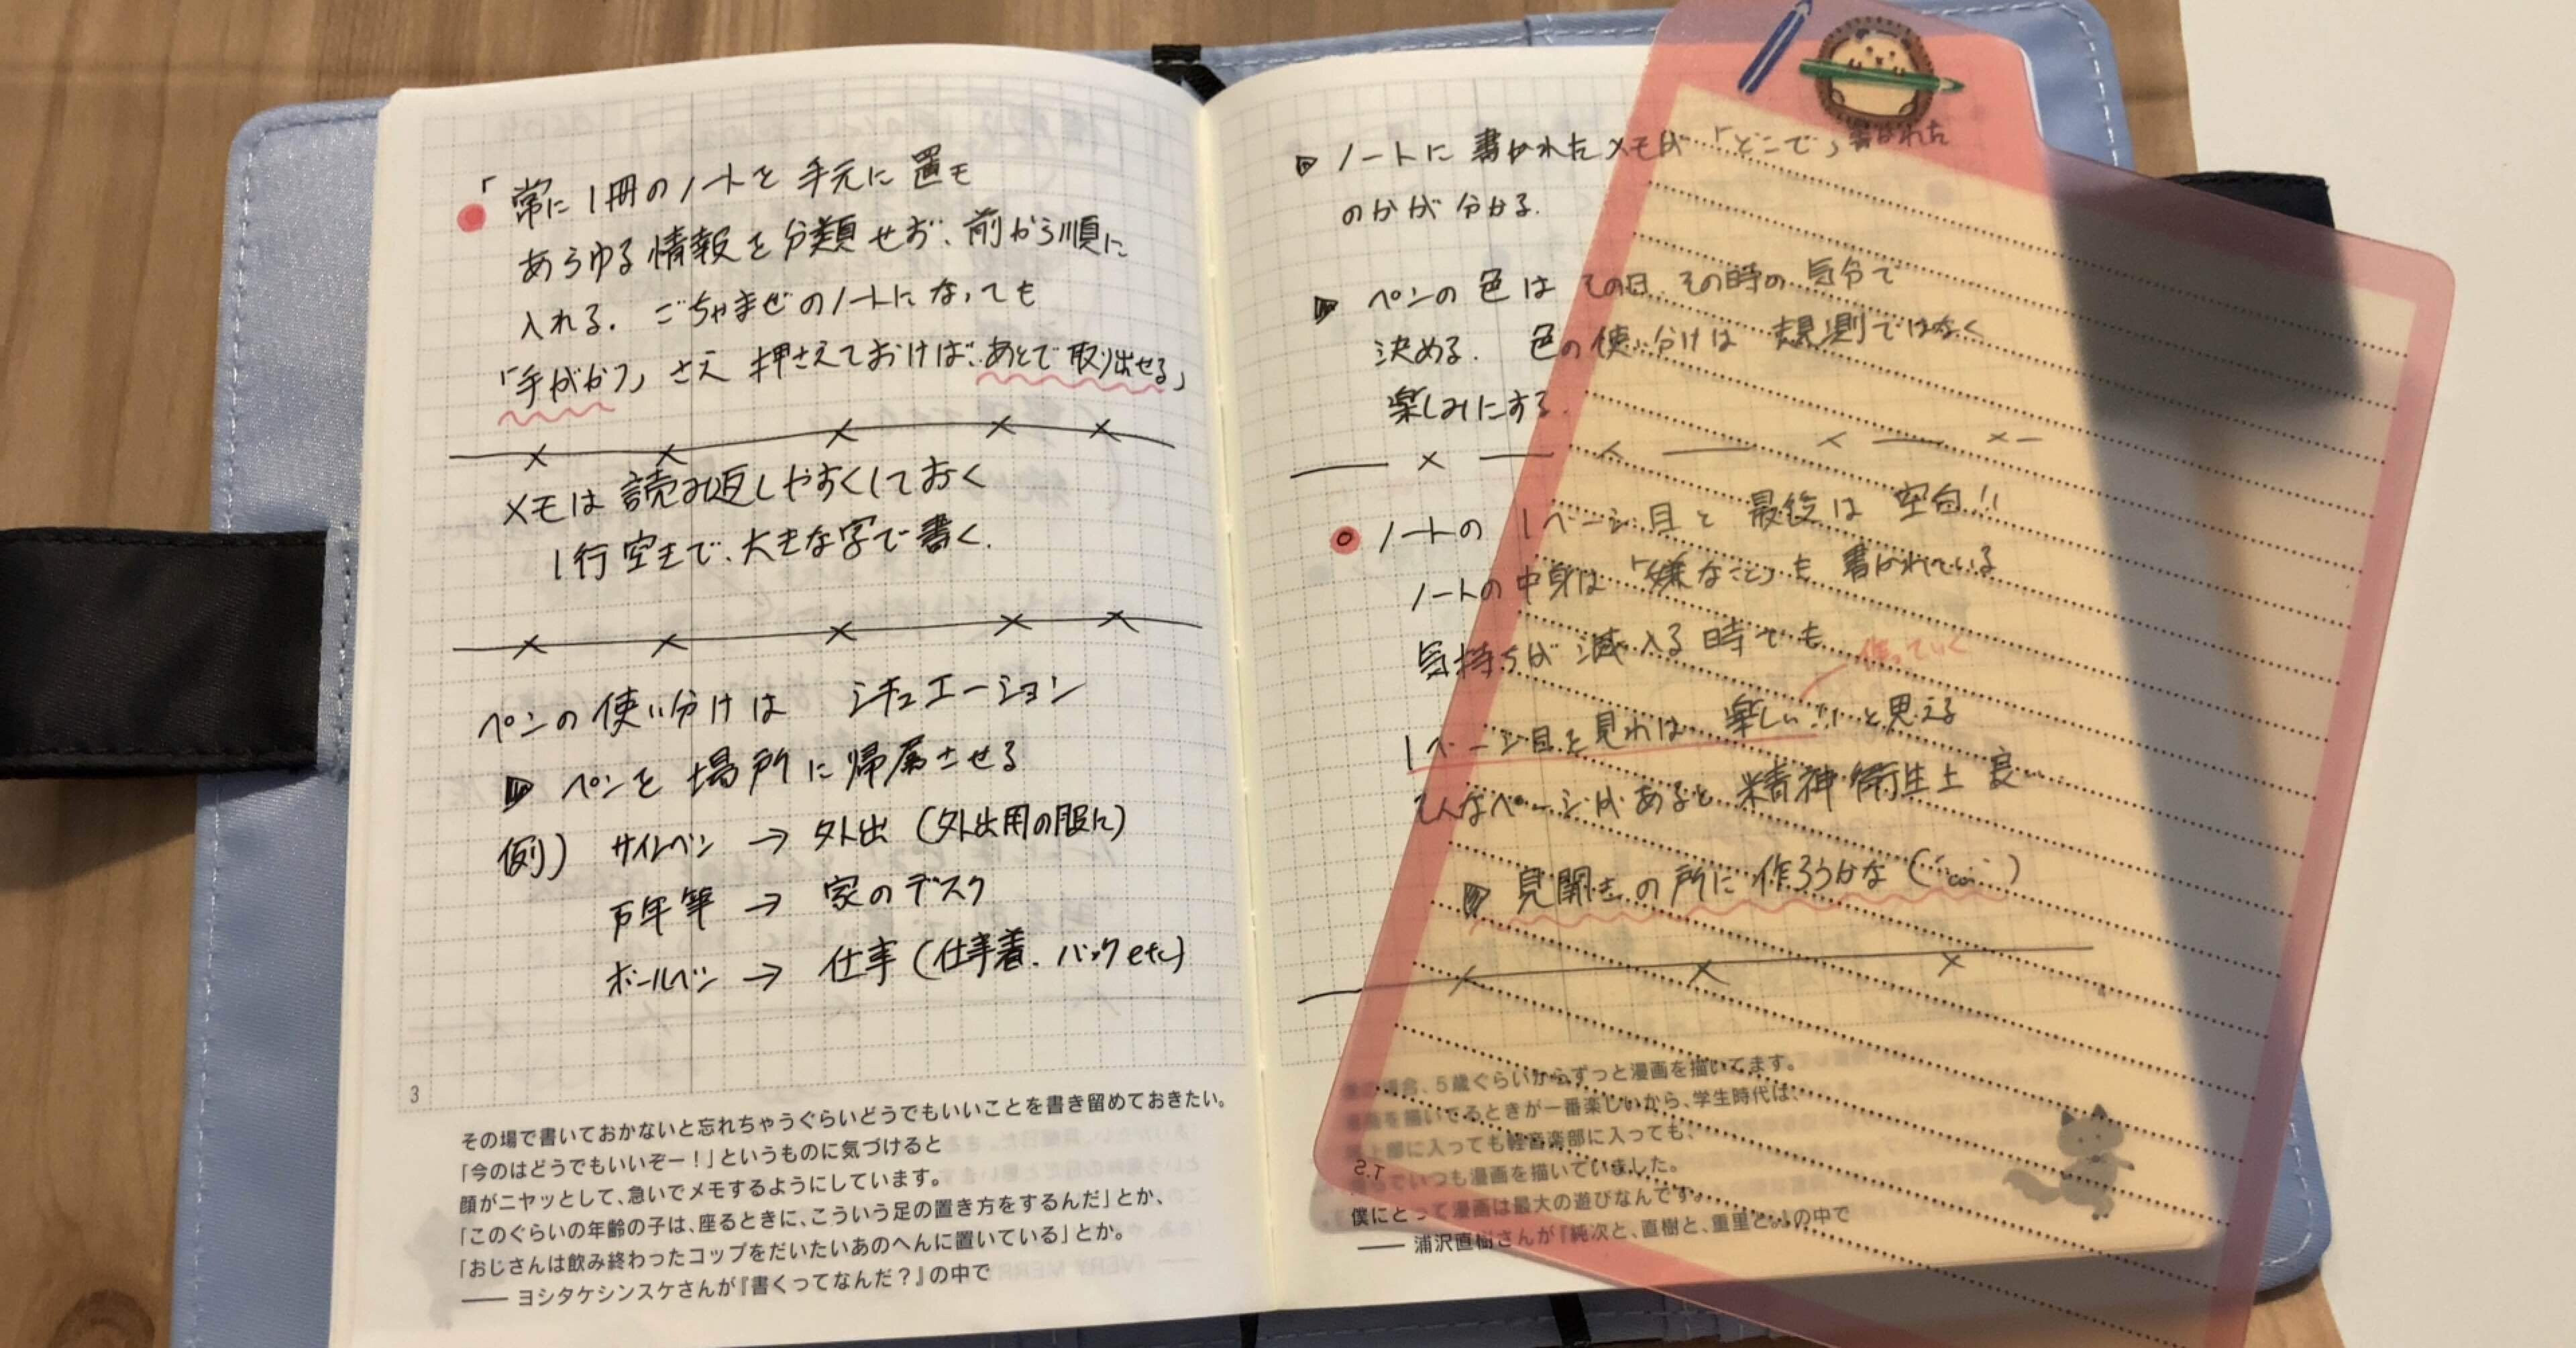 「常に1冊のノートを手元に置き
あらゆる情報を分類せず、前から順に
入れる。ごちゃまぜのノートになっても
「手がかり」さえ押さえておけば、あとで取り出せる」
メモは読み返しやすくしておく
1行空きで、大きな字で書く.
ペンの使い分けは シチュエーション
ペンを場所に帰属させる
例) サインペン → 外出 (外出用の服に)
万年筆 → 家のデスク
ボールペン → 仕事 (仕事着. バック etc)
3
その場で書いておかないと忘れちゃうぐらいどうでもいいことを書き留めておきたい。
「今のはどうでもいいぞー!」というものに気づけると
顔がニヤッとして、急いでメモするようにしています。
「このぐらいの年齢の子は、座るときに、こういう足の置き方をするんだ」とか、
「おじさんは飲み終わったコップをだいたいあのへんに置いている」とか。
—— ヨシタケシンスケさんが『書くってなんだ?』の中で
ノートに書かれたメモが「どこで」書かれた
のかが分かる.
ペンの色はその日、その時の気分で
決める. 色の使い分けは規則ではなく
楽しみにする.
ノートの1ページ目と最後は空白!!
ノートの中身は「嫌なこと」も書かれている
気持ちが滅入る時でも
作っていく
1ページ目を見れば 楽しい!! と思える
そんなページがあると精神衛生上良い
見開きの所に作ろうかな
、5歳ぐらいからずっと漫画を描いてます。
を描いてるときが一番楽しいから、学生時代は、
上部に入っても軽音楽部に入っても、
ていつも漫画を描いていました。
僕にとって漫画は最大の遊びなんです。
—— 浦沢直樹さんが『純次と、直樹と、重里と。』の中で